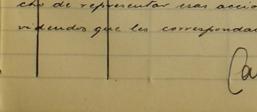 cho de representar esas accio
videndos que les correspondan
(a